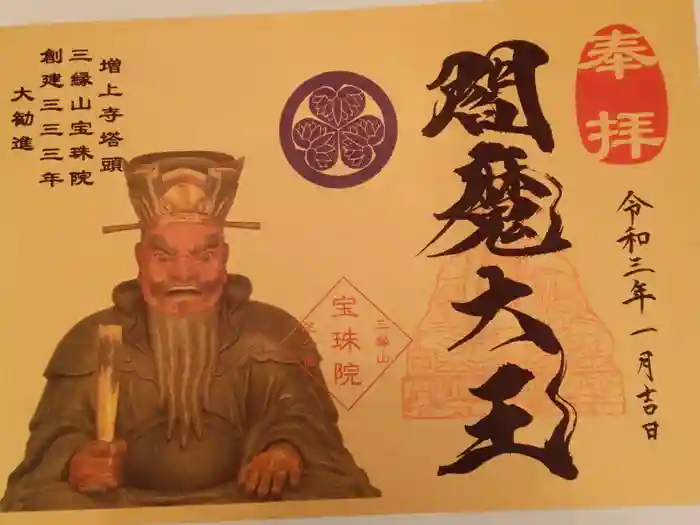 奉拝
令和三年一月吉日
閻魔大王
三縁山
宝珠院
増上寺塔頭
三縁山宝珠院
創建三三三年
大勧進